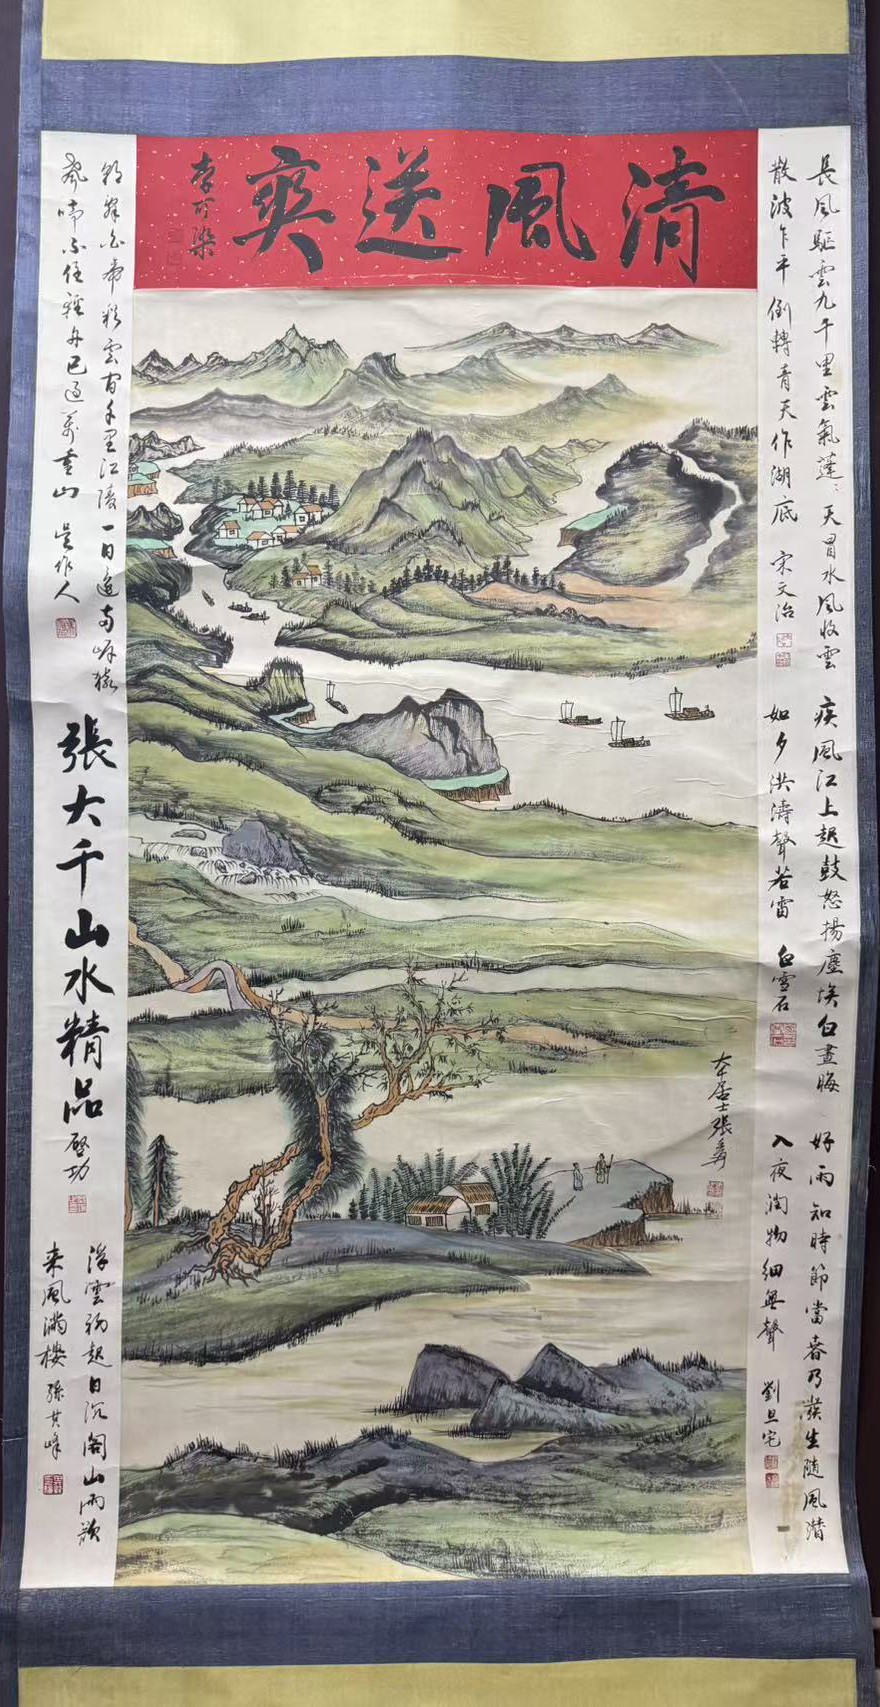 清風送爽
李可染
長風驅雲九千里雲氣蓬〻天冒水風收雲
散波乍平倒轉青天作湖底 宋文治
疾風江上起鼓怒揚塵埃白晝晦
如夕洪濤聲若雷 白雪石
好雨知時節當春乃發生隨風潛
入夜潤物細無聲 劉旦宅
大千居士張爰
朝辞白帝彩雲間千里江陵一日還兩岸猿
聲啼不住輕舟已過萬重山 吴作人
張大千山水精品
啓功
溪雲初起日沉閣山雨欲
来風滿樓 孫其峰